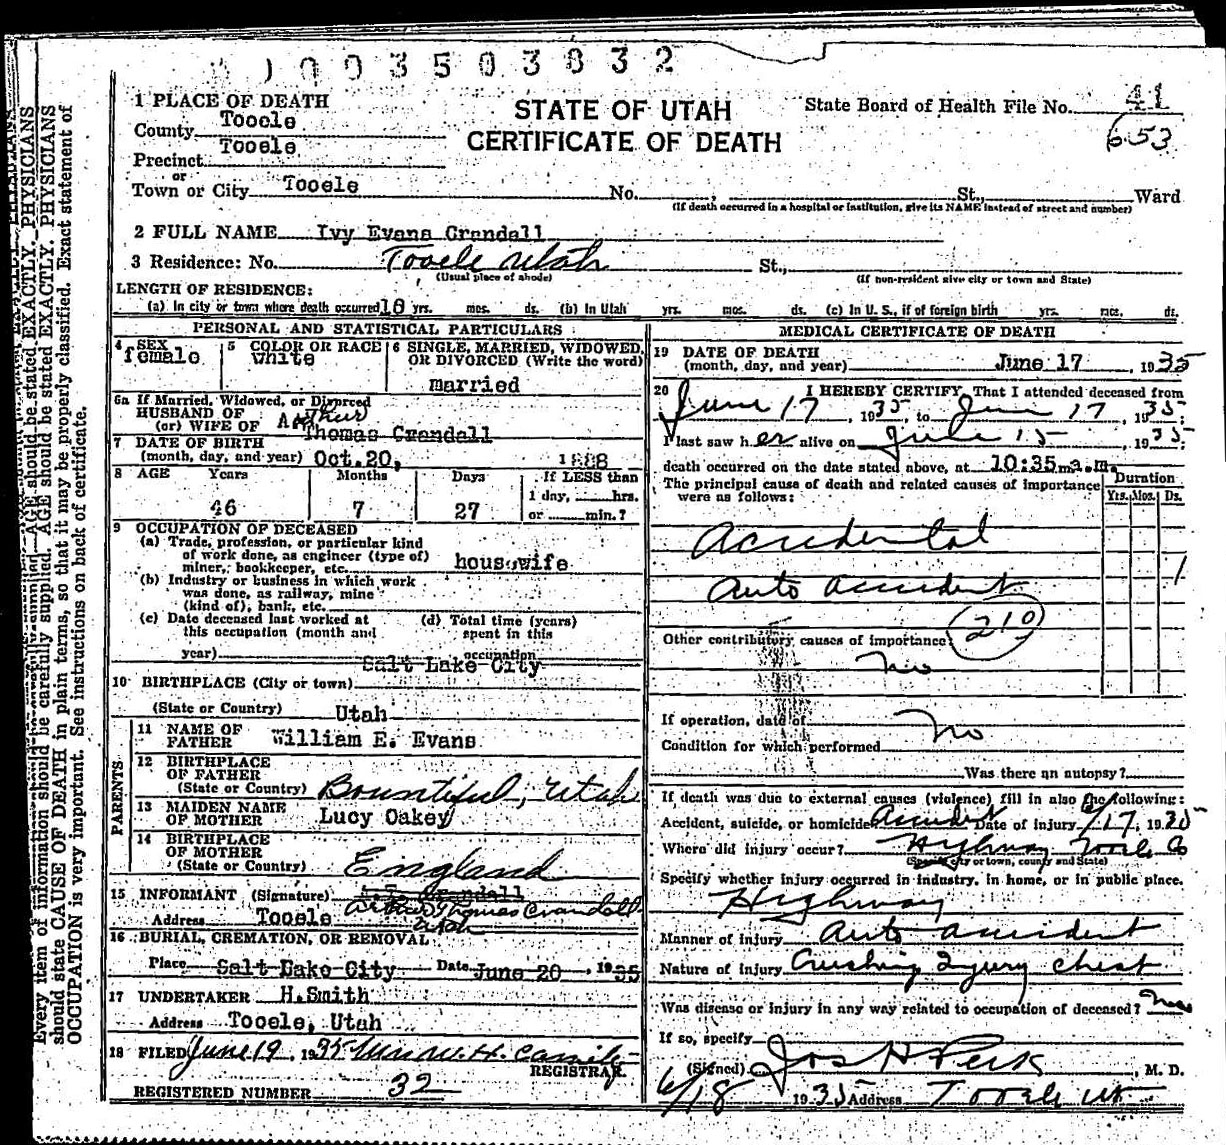 0 0 0 3 5 0 3 8 3 2
1 PLACE OF DEATH
County Tooele
Precinct Tooele
or
Town or City Tooele No. St., Ward
(If death occurred in a hospital or institution, give its NAME instead of street and number)
STATE OF UTAH
CERTIFICATE OF DEATH
State Board of Health File No. 41
653
2 FULL NAME Ivy Evans Crandall
3 Residence: No. Tooele Utah St.,
(Usual place of abode) (If non-resident give city or town and State)
LENGTH OF RESIDENCE:
(a) In city or town where death occurred 18 yrs. mos. ds. (b) In Utah yrs. mos. ds. (c) In U. S., if of foreign birth yrs. mos. ds.
PERSONAL AND STATISTICAL PARTICULARS
4 SEX female
5 COLOR OR RACE white
6 SINGLE, MARRIED, WIDOWED, OR DIVORCED (Write the word)
married
6a If Married, Widowed, or Divorced
HUSBAND OF
(or) WIFE OF Arthur Thomas Crandall
7 DATE OF BIRTH
(month, day, and year) Oct.20, 1888
8 AGE Years Months Days If LESS than
1 day, hrs.
46 7 27 or min.?
9 OCCUPATION OF DECEASED
(a) Trade, profession, or particular kind
of work done, as engineer (type of)
miner, bookkeeper, etc. housewife
(b) Industry or business in which work
was done, as railway, mine
(kind of), bank, etc.
(c) Date deceased last worked at
this occupation (month and
year)
(d) Total time (years)
spent in this
occupation
Salt Lake City
10 BIRTHPLACE (City or town)
(State or Country) Utah
PARENTS
11 NAME OF
FATHER William E. Evans
12 BIRTHPLACE
OF FATHER
(State or Country) Bountiful, Utah
13 MAIDEN NAME
OF MOTHER Lucy Oakey
14 BIRTHPLACE
OF MOTHER
(State or Country) England
15 INFORMANT (Signature) Crandall
Arthur Thomas Crandall
Address Tooele Utah
16 BURIAL, CREMATION, OR REMOVAL
Place Salt Lake City Date June 20, 1935
17 UNDERTAKER H.Smith
Address Tooele, Utah
18 FILED June 19, 1935
REGISTRAR.
REGISTERED NUMBER 32
MEDICAL CERTIFICATE OF DEATH
19 DATE OF DEATH
(month, day, and year) June 17, 1935
20 I HEREBY CERTIFY, That I attended deceased from
June 17, 1935, to June 17, 1935;
I last saw her alive on June 15 1935;
death occurred on the date stated above, at 10:35 a.m.
The principal cause of death and related causes of importance
were as follows:
Duration
Yrs. Mos. Ds.
Accidental
Auto accident 1
210
Other contributory causes of importance:
No
If operation, date of No
Condition for which performed
Was there an autopsy?
If death was due to external causes (violence) fill in also the following:
Accident, suicide, or homicide? Accident Date of injury 6/17, 1935
Where did injury occur? Highway Tooele Co
(Specify city or town, county and State)
Specify whether injury occurred in industry, in home, or in public place.
Highway
Manner of injury Auto accident
Nature of injury Crushing Injury chest
Was disease or injury in any way related to occupation of deceased? No
If so, specify
(Signed) Jos H Peck, M. D.
6/18 1935 Address Tooele Ut
Every item of information should be carefully supplied. AGE should be stated EXACTLY. PHYSICIANS
should state CAUSE OF DEATH in plain terms, so that it may be properly classified. Exact statement of
OCCUPATION is very important. See instructions on back of certificate.